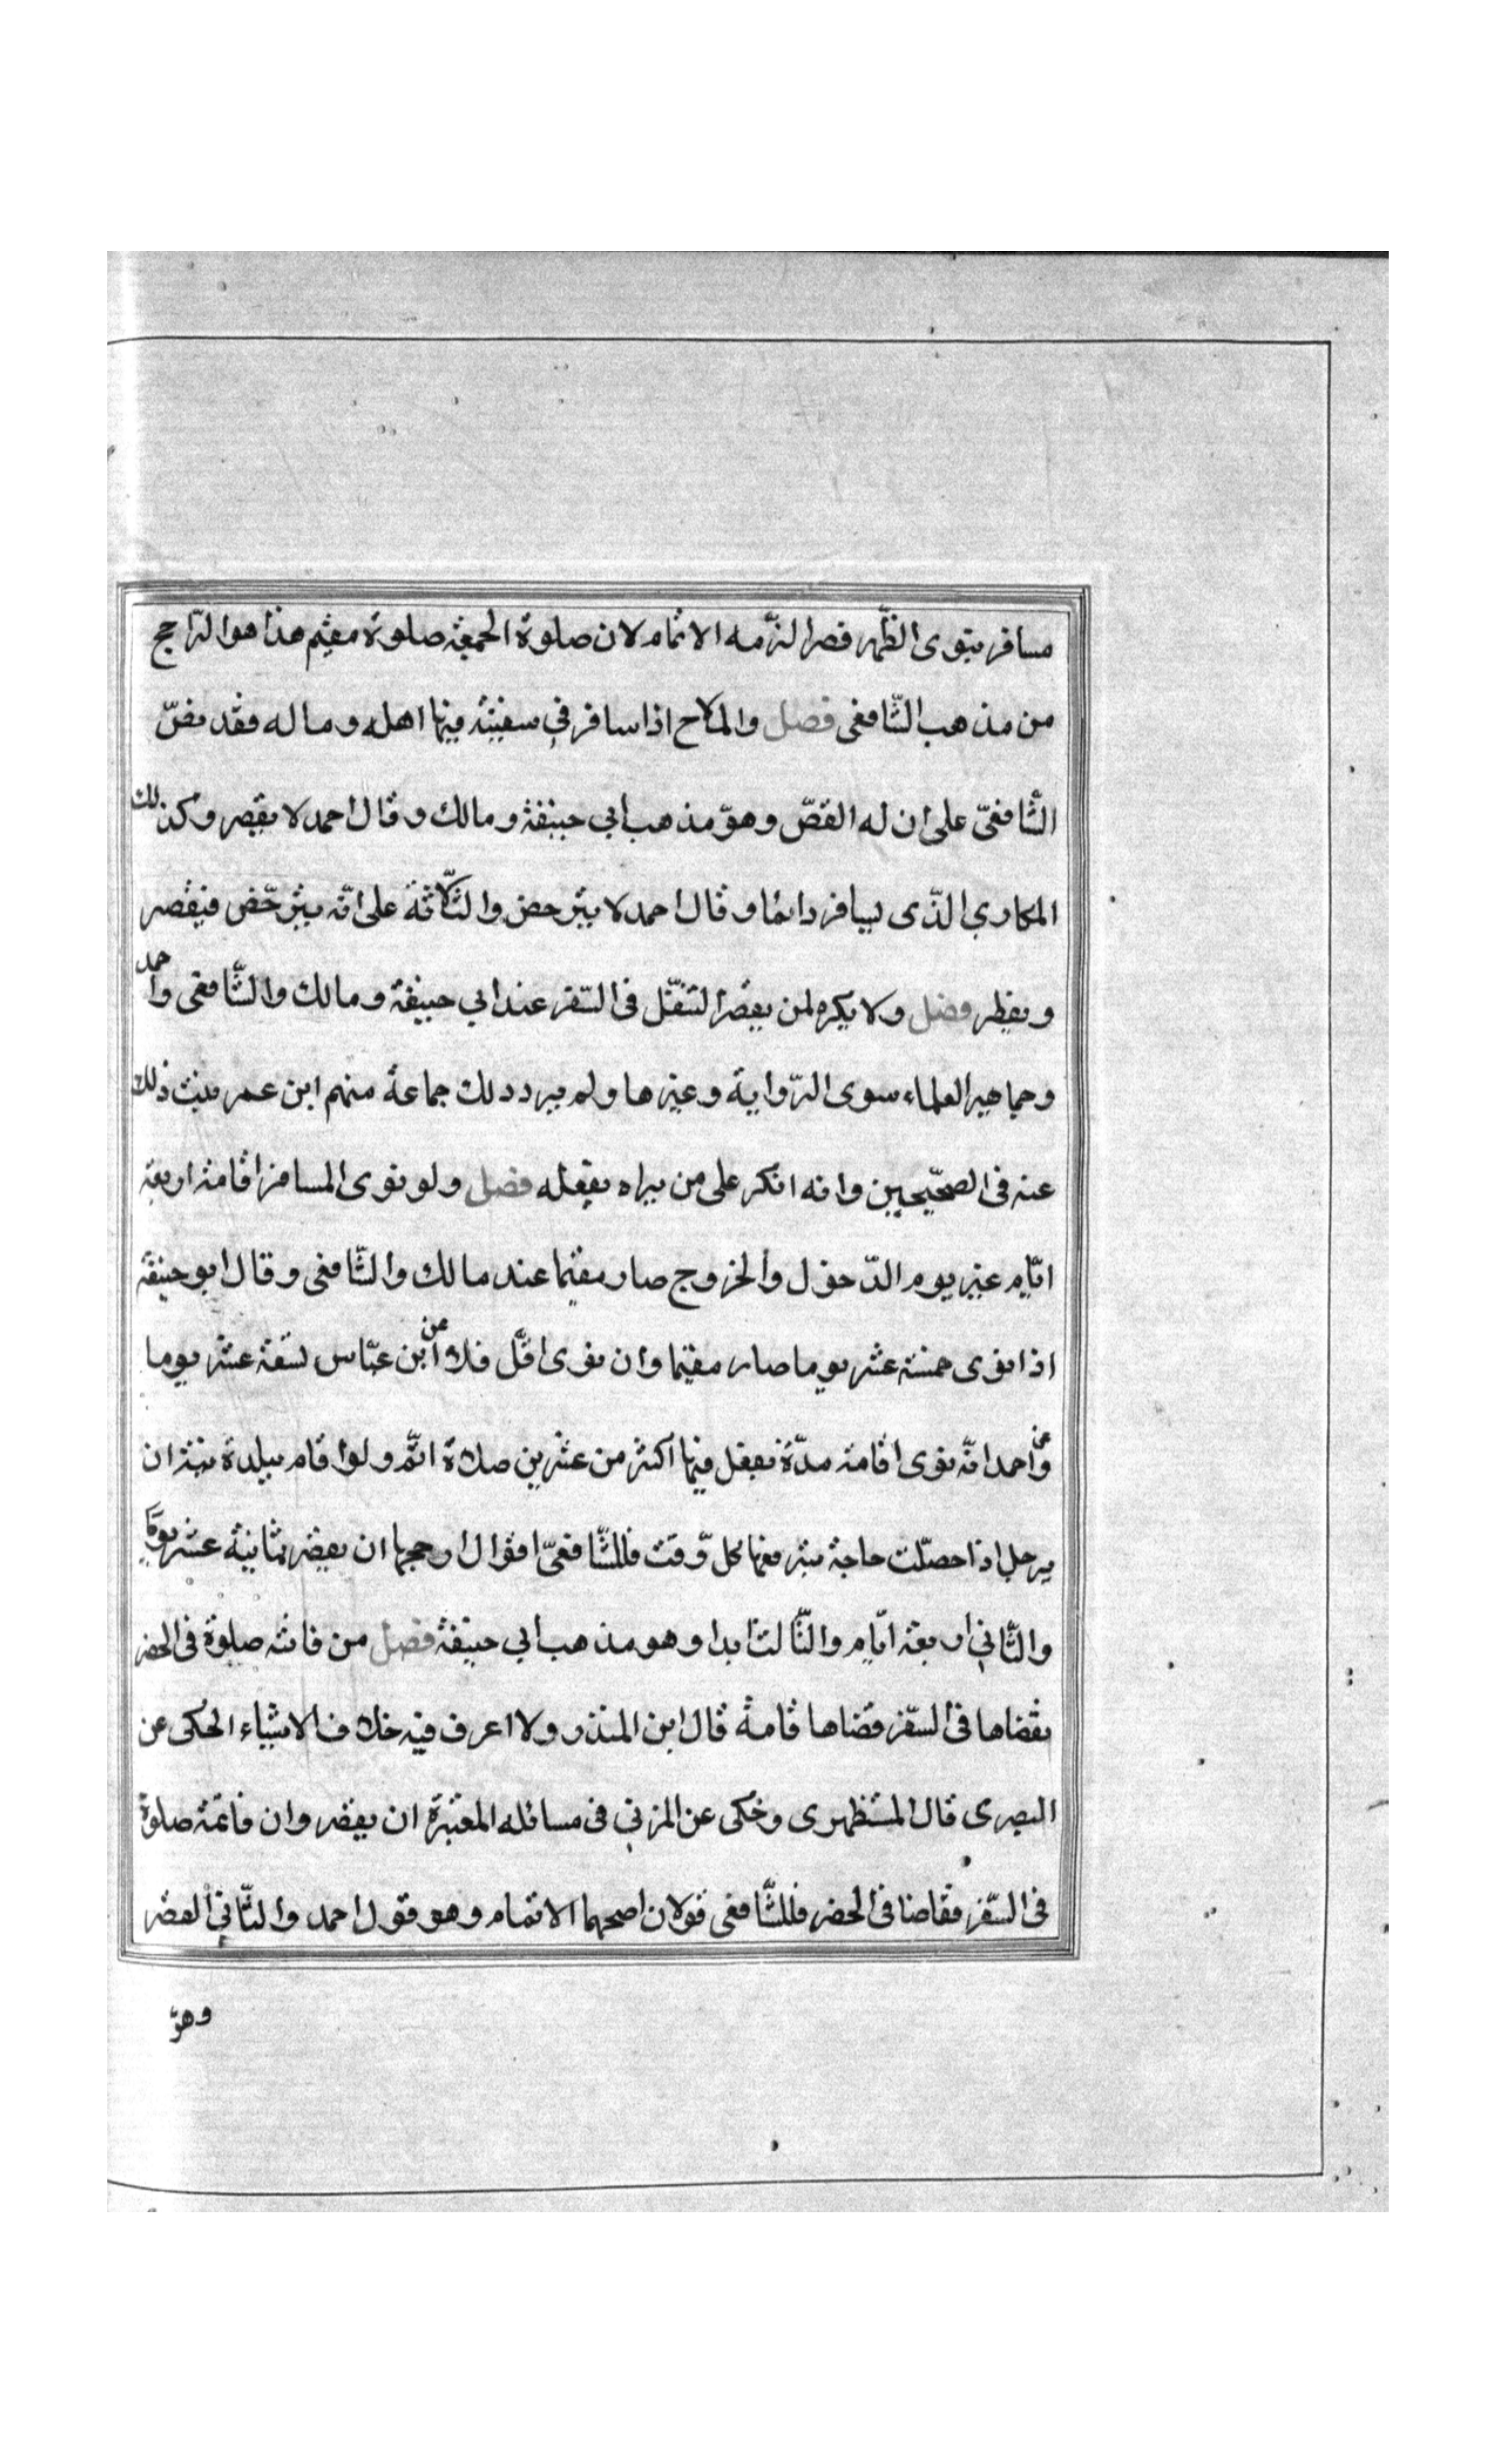 مسافر ينوى الظهر قصرا لزمه الاتمام لان صلوة الجمعة صلوة مقيم هذا هو الراجح
من مذهب الشافعى فصل والملاح اذا سافر في سفينة فيها اهله وماله فقد نصّ
الشافعىّ على ان له القصّر وهو مذهب أبي حنيفة ومالك وقال احمد لا يقصر وكذلك
المكاري الذّى يسافر دائما وقال احمد لا يترخص والثلاثة على انّه يترخّص فيقصر
ويفطر فصل ولا يكره لمن يقصر التنفّل فى السّفر عند ابي حنيفة ومالك والشّافعى واحمد
وجماهير العلماء سوى الرّواية وغيرها ولم يرد ذلك جماعة منهم ابن عمر يثبت ذلك
عنه فى الصحّيحين وانه انكر على من يراه يفعله فصل ولو نوى المسافر اقامة اربعة
ايّام غير يوم الدّخول والخروج صار مقيما عند مالك والشّافعى وقال ابو حنيفة
اذا نوى خمسة عشر يوما صار مقيما وان نوى اقلّ فلا وعن ابن عبّاس تسعة عشر يوما
وعن احمد انّه نوى اقامة مدّة يفعل فيها اكثر من عشرين صلاة اتمّ ولو اقام ببلدة بنية ان
يرحل اذا حصّلت حاجة يتوقعها كل وّقت فللشّافعىّ اقوال ارجحها ان يقصر ثمانية عشر يوما
والثّاني اربعة ايّام والثّالث ابدا وهو مذهب أبي حنيفة فصل من فاتته صلوة فى الحضر
يقضاها فى السّفر قضاها قامة قال ابن المنذر ولا اعرف فيه خلاف الا شياء الحكى عن
البصرى قال المستظهرى وحكى عن المزني فى مسائله المعتبرة ان يقصر وان فاتته صلوة
فى السّفر فقاضا فى الحضر فللشّافعى قولان اصحهما الاتمام وهو قول احمد والثّاني القصر
وهوّ